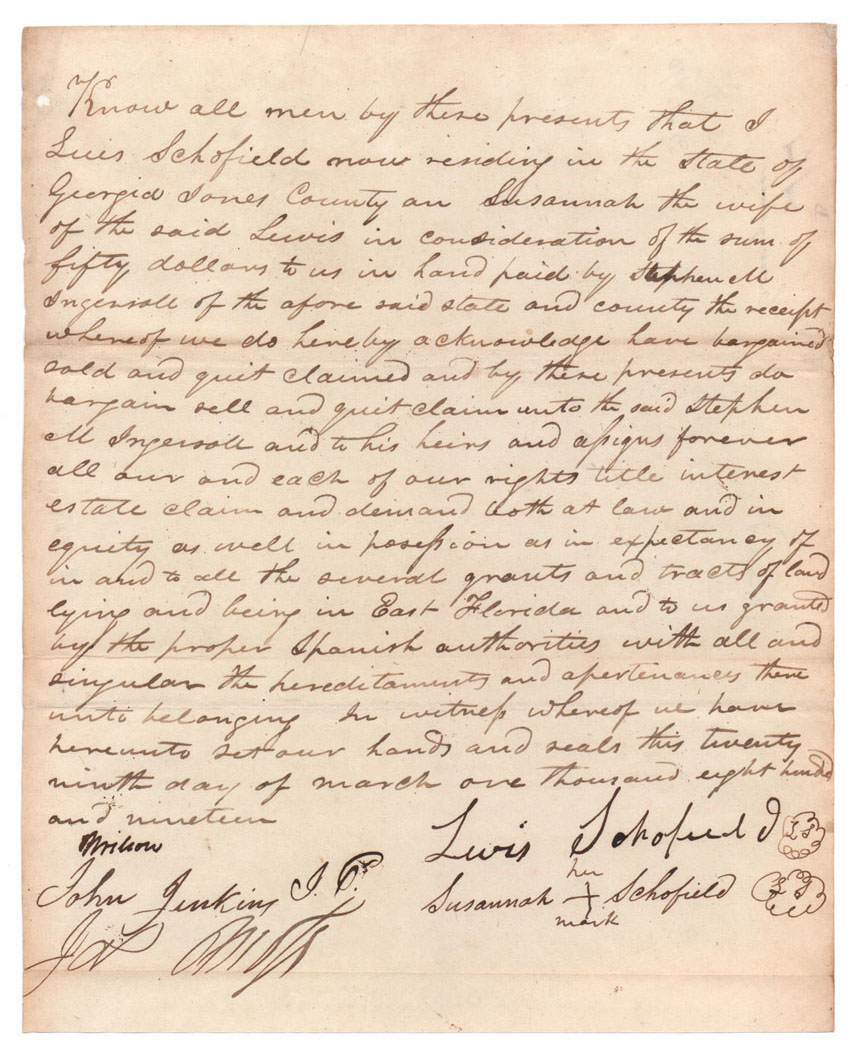 Know all men by these presents that I
Luis Schofield now residing in the State of
Georgia Jones County an Susannah the wife
of the said Lewis in consideration of the sum of
fifty dollars to us in hand paid by Stephen M
Ingersoll of the afore said state and county the receipt
whereof we do hereby acknowledge have bargained
sold and quit claimed and by these presents do
bargain sell and quit claim unto the said Stephen
M Ingersoll and to his heirs and assigns forever
all our and each of our rights title interest
estate claim and demand both at law and in
equity as well in posession as in expectancy of
in and to all the several grants and tracts of land
lying and being in East Florida and to us granted
by the proper Spanish authorities with all and
singular the hereditaments and apertenances there
unto belonging In witness whereof we have
hereunto set our hands and seals this twenty
ninth day of march one thousand eight hundd
and nineteen
Lewis Schofield LS
John Jenkins J.P.
her
Susannah + Schofield LS
mark